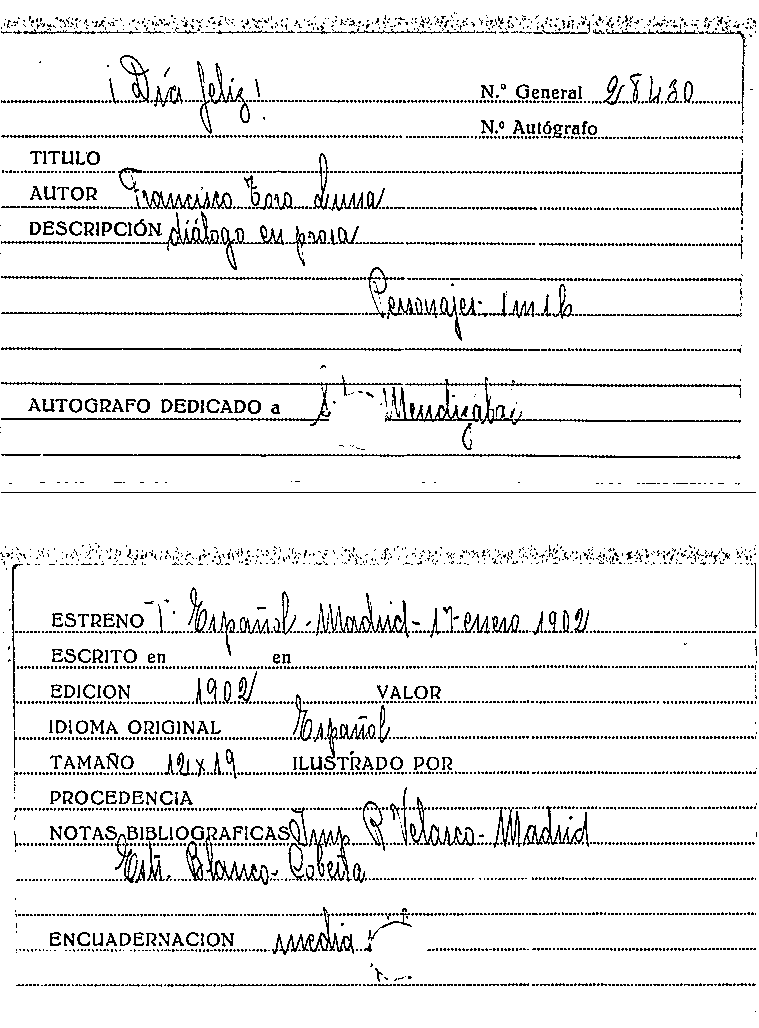 ¡Día feliz!
N.º General 28430
N.º Autógrafo
TITULO
AUTOR Francisco Toro Luna
DESCRIPCIÓN diálogo en prosa
Personajes- 1m 1h
AUTOGRAFO DEDICADO a S. Mendizabal
ESTRENO T. Español - Madrid - 17- enero 1902
ESCRITO en en
EDICION 1902 VALOR
IDIOMA ORIGINAL Español
TAMAÑO 12x19 ILUSTRADO POR
PROCEDENCIA
NOTAS BIBLIOGRAFICAS Imp Rn Velasco - Madrid
Estr. Blanco - Cobeña
ENCUADERNACION media